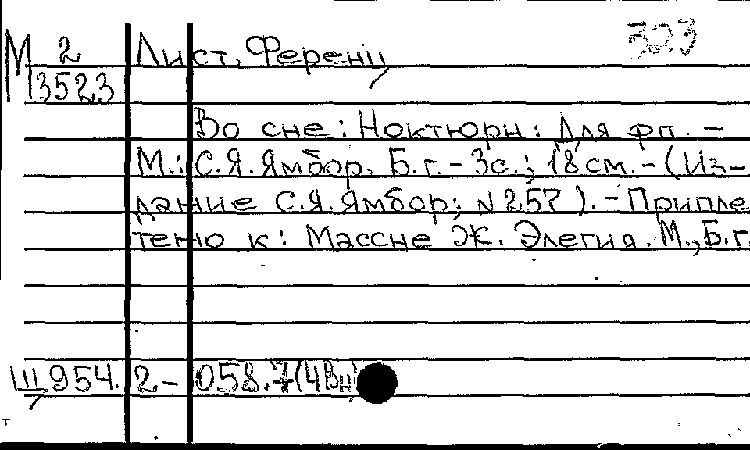 М 2 Лист, Ференц 323
М3523
Во сне: Ноктюрн: Для фп. –
М.: С.Я. Ямбор, Б.г. – 3с.; 18см. – (Из-
дание С.Я. Ямбор; N 257). – Припле
тено к: Массне Ж. Элегия. М., Б.г.
Щ954.2-058.7(4Вн)